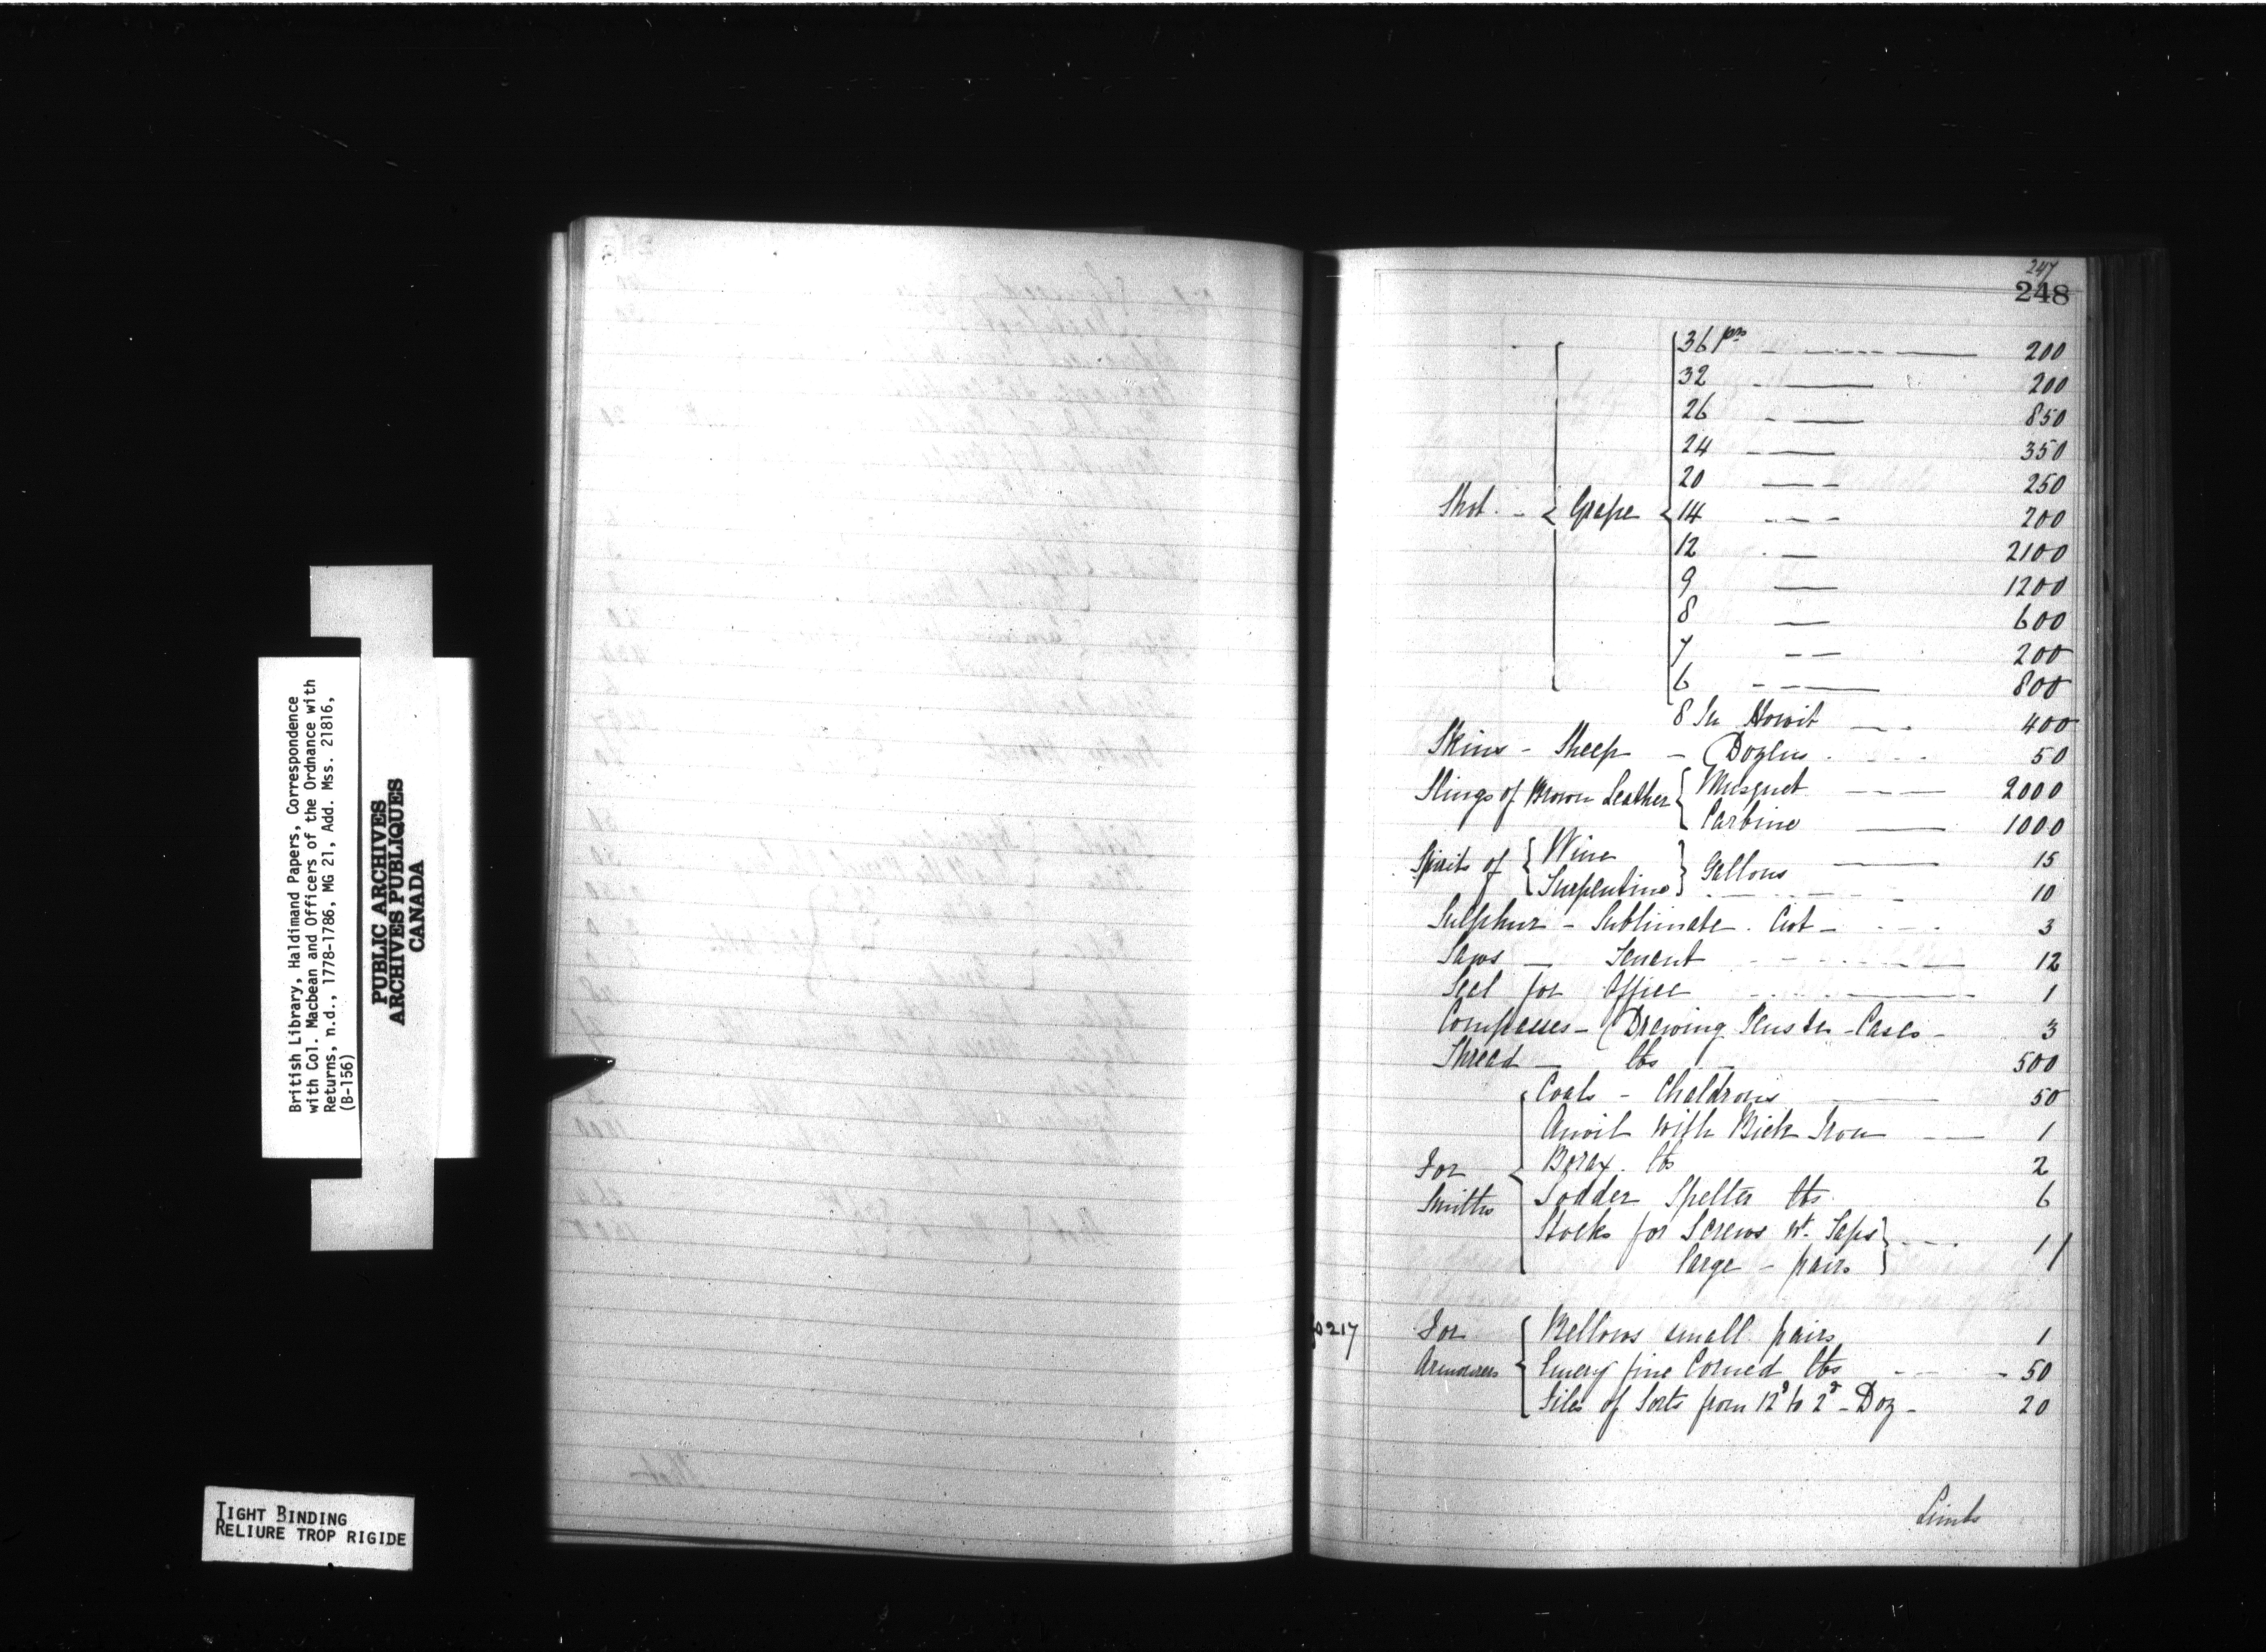 British Library, Haldimand Papers, Correspondence
with Col. Macbean and Officers of the Ordnance with
Returns, n.d., 1778-1786, MG 21, Add. Mss. 21816,
(B-156)
PUBLIC ARCHIVES
ARCHIVES PUBLIQUES
CANADA
TIGHT BINDING
RELIURE TROP RIGIDE
247
248
36 prs 200
32 200
26 850
24 350
20 250
Shot - Grape 14 200
12 2100
9 1200
8 600
7 200
6 800
8 In Howit 400
Skins - Sheep - Dozens 50
Slings of Brown Leather Musquet 2000
Carbine 1000
Spirits of Wine Gallons 15
Turpentine 10
Sulphur - Sublimate. Cwt - 3
Saws - Tenent 12
Seal for Office 1
Compasses - Drawing - Cases - 3
Thread - lbs 500
Coals - Chaldrons 50
Anvil with Bick Iron 1
For Borax. lbs 2
Smiths Sodder Spelter lbs 6
Stocks for Screws wt. Taps
large - pairs 1
fo 217
For Bellows small pairs 1
Armourers Emery fine Corned lbs 50
Files of Sorts from 12d to 2d - Doz - 20